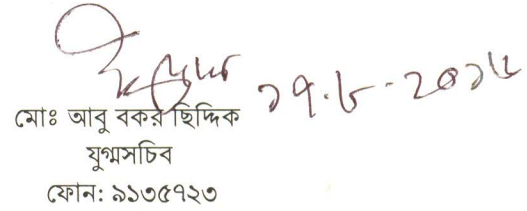 ১৭.৮.২০১৫
মোঃ আবু বকর ছিদ্দিক
যুগ্মসচিব
ফোন: ৯১৩৫৭২৩